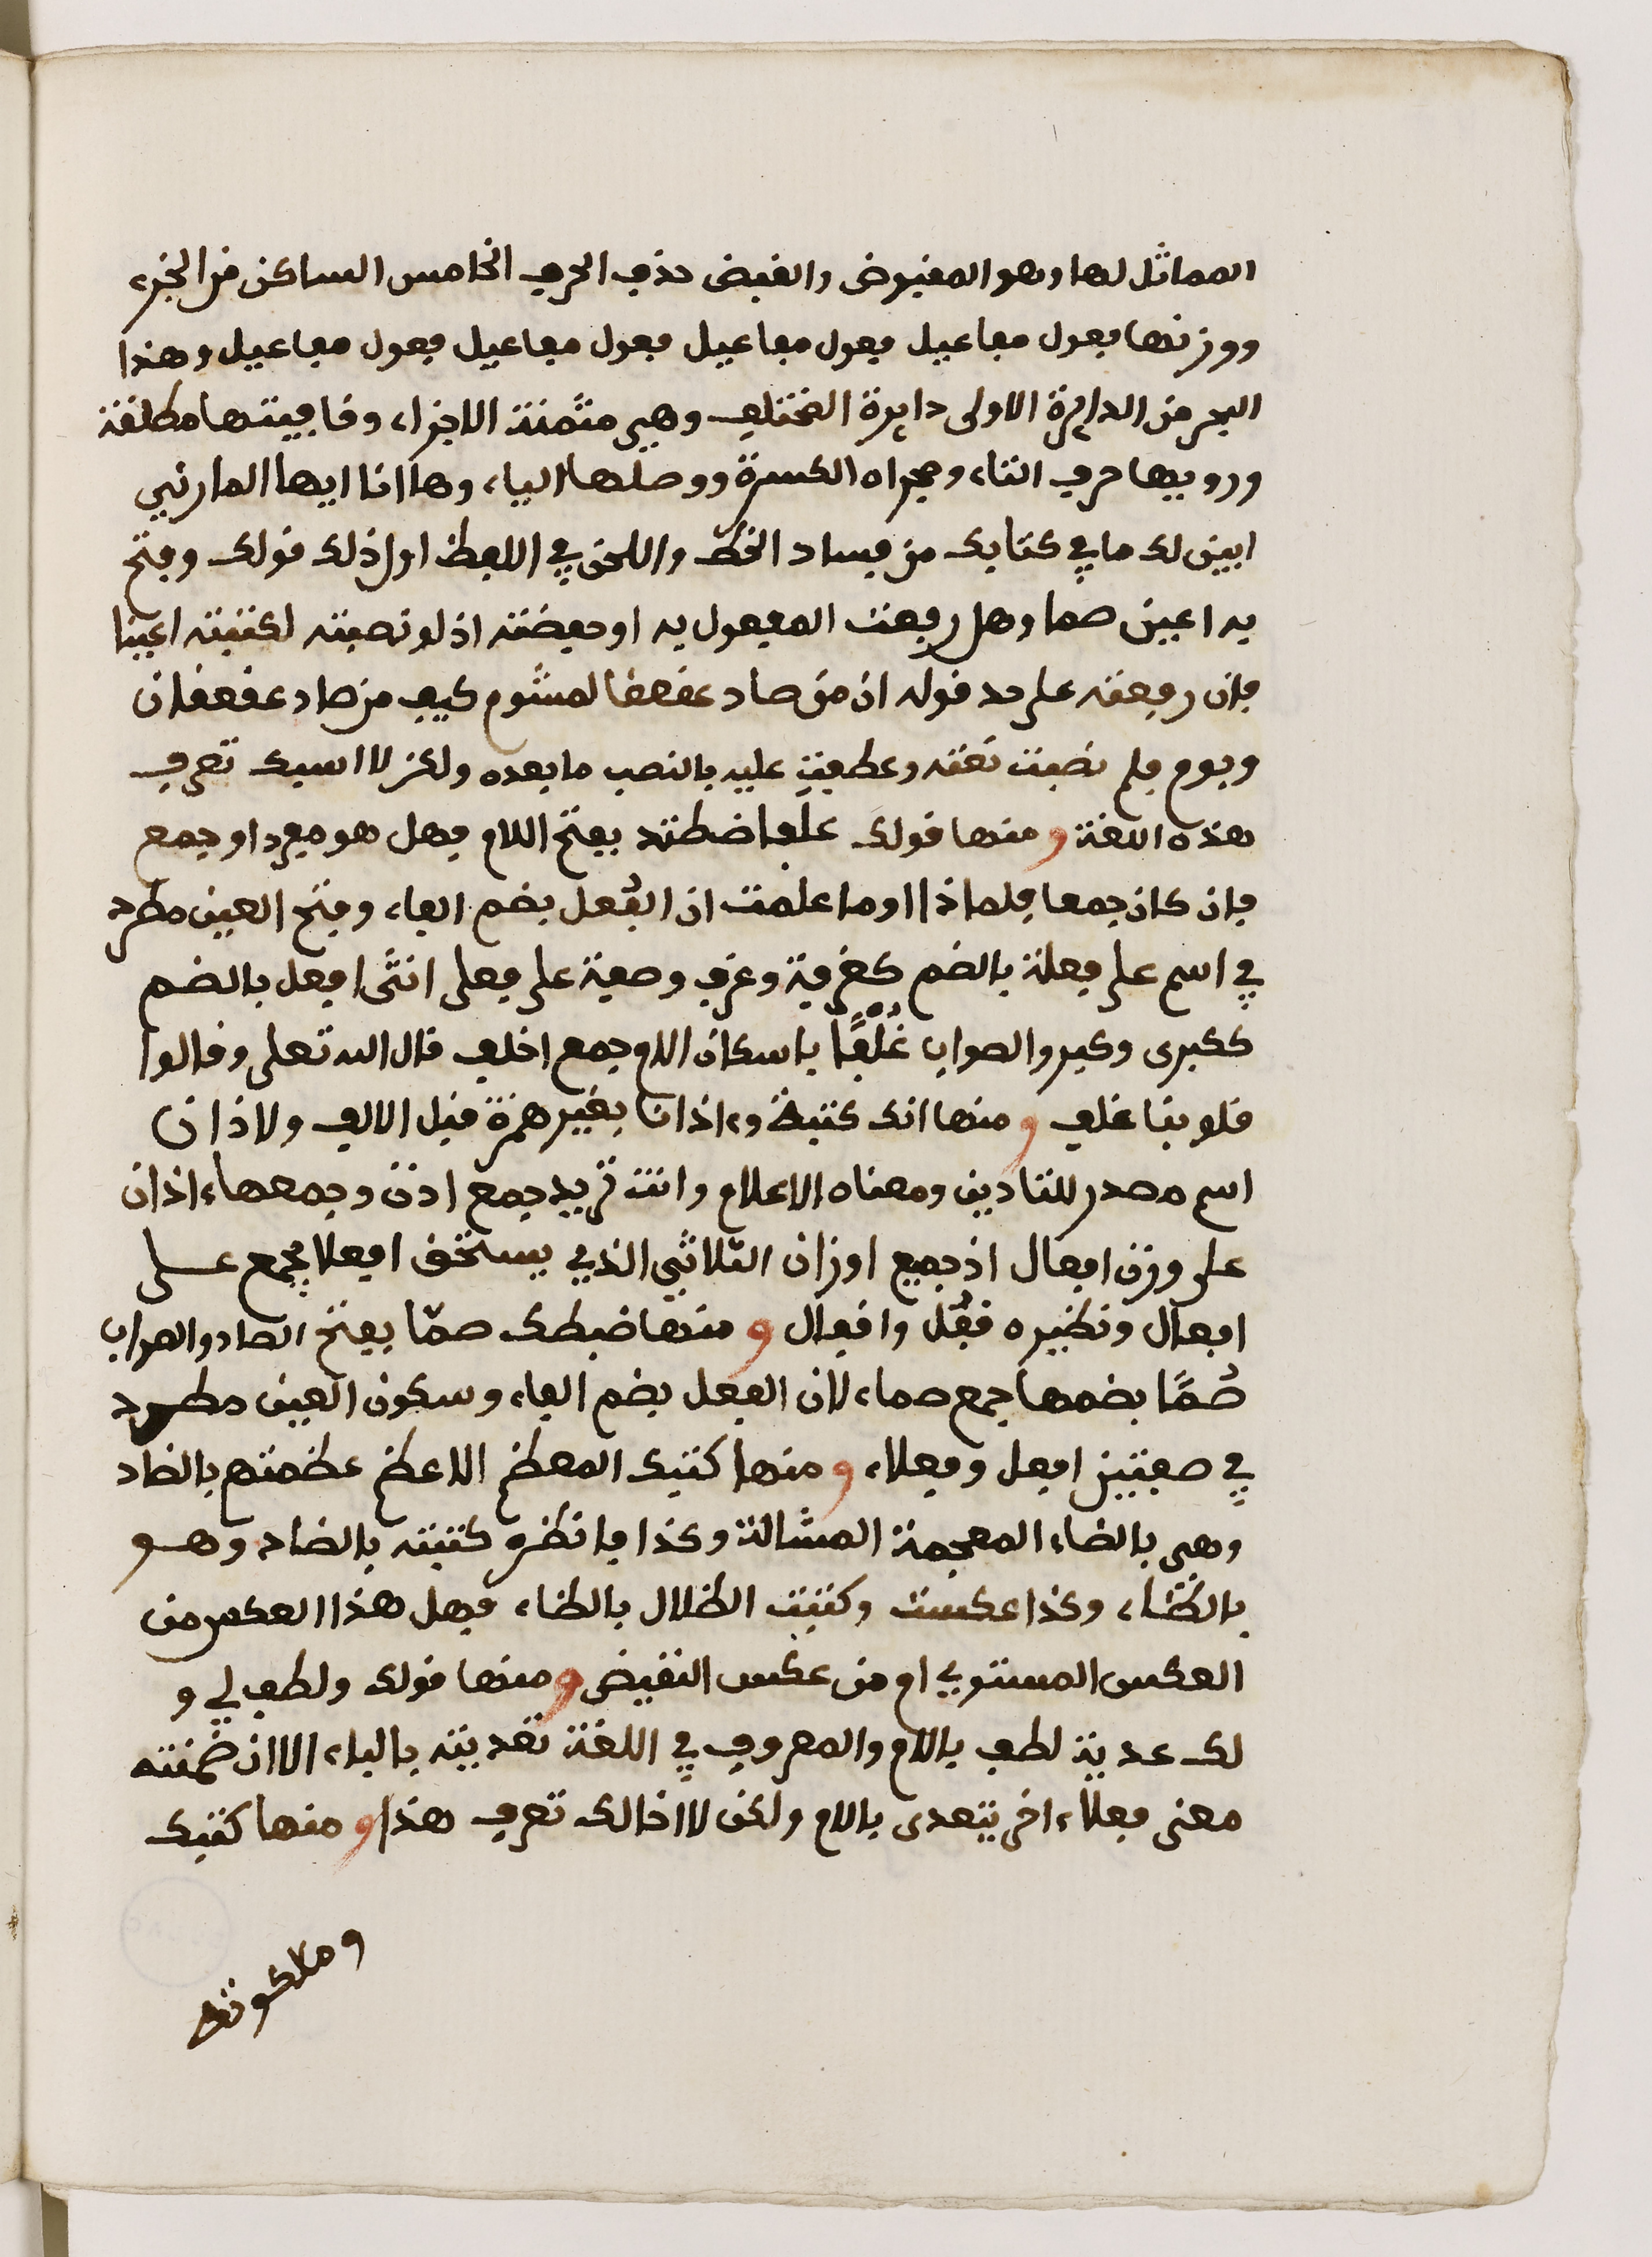 المماثل لها وهو المقبوض والقبض حذف الحرف الخامس الساكن من الجزء
ووزنها فعول مفاعيل فعول مفاعيل فعول مفاعيل فعول مفاعيل وهذا
البحر من الدايرة الاولى دايرة المختلف وهي مثمنة الاجزاء وقافيتها مطلقة
ورويها حرف التاء ومجراه الكسرة ووصلها الياء وها انا ايها المارني
ابين لك ما في كتابك من فساد الخط واللحن في اللفظ اول ذلك قولك وفتح
به اعين صما وهل رفعت المفعول به او خفضته اذ لو نصبته لكتبته اعينا
فان رفعته على حد قوله ان من صاد عقعقا لمشوم كيف من صاد عقعقان
وبوم فلم نصبت نعته وعطفت عليه بالنصب ما بعده ولكن لا اسيك تعرف
هذه اللغة ومنها قولك غلفا ضطته بفتح اللام فهل هو مفرد او جمع
فان كان جمعا فلماذا اوما علمت ان الفعل بضم الفاء وفتح العين مطرد
في اسم على فعلة بالضم كغرفة وغرف وصفة على فعلى انثى افعل بالضم
ككبرى وكبر والصواب غُلْفًا باسكان اللام جمع اغلف قال الله تعلى وقالوا
قلوبنا غلف ومنها انك كتبت وءاذانا بغير همزة قبل الالف ولاذان
اسم مصدر للتاذين ومعناه الاعلام وانت تريد جمع اذن وجمعها ءاذان
على وزن افعال اذ جميع اوزان الثلاثي الذي يستحق افعلا يجمع على
افعال ونظيره قفل واقفال ومنها ضبطك صمّا بفتح الصاد والصواب
صُمًّا بضمها جمع صماء لان الفعل بضم الفاء وسكون العين مطرد
في صفتين افعل وفعلاء ومنها كتبك المعظم الاعظم عظمتهم بالضاد
وهي بالظاء المعجمة المشالة وكذا فانظر كتبته بالضاد وهو
بالظاء وكذا عكست وكتبت الظلال بالظاء فهل هذا العكس من
العكس المستوي ام من عكس النقيض ومنها قولك ولطف لي و
لك عدية لطف باللام والمعروف في اللغة تعديته بالباء الا ان ضمنته
معنى فعلاء اخر يتعدى باللام ولكن لا اخالك تعرف هذا ومنها كتبك
وملكوته